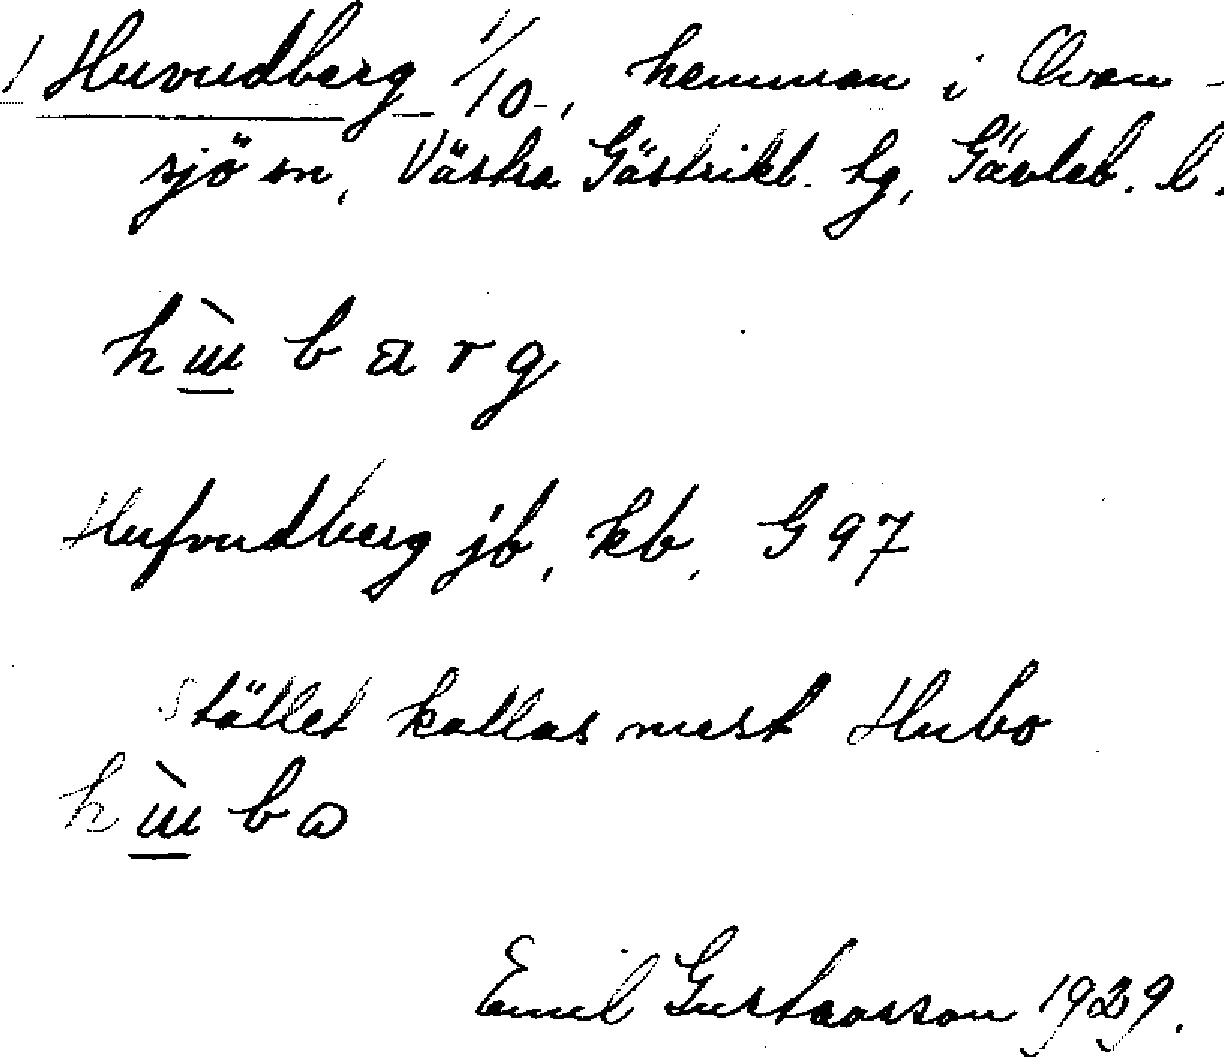 1 Huvudberg 1/10, hemman i Ovan-
sjö sn, Västra Gästrikl. tg, Gävleb. l.
h ù b a r g
Hufvudberg jb, kb, G 97
Stället kallas mest Hubo
h ù b o
Emil Gustavsson 1929.